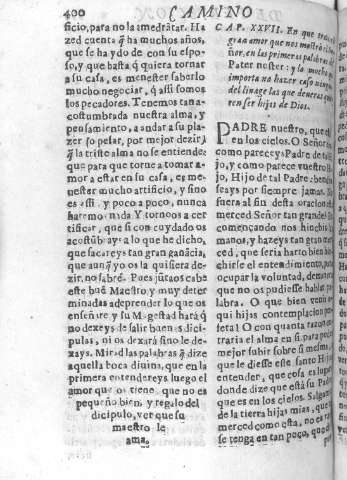 400
CAMINO
ficio, para no la amedrãtar. Ha
zed cuenta q̃ ha muchos años,
que se ha ydo de con su espo-
so, y que hasta q̃ quiera tornar
a su casa, es menester saberlo
mucho negociar, q̃ assi somos
los pecadores. Tenemos tan a-
costumbrada nuestra alma, y
pensamiento, a andar a su pla-
zer (o pesar, por mejor dezir)
q̃ la triste alma no se entiende
que para que torne a tomar a-
mor a estar en su casa, es me-
nester mucho artificio, y sino
es assi, y poco a poco, nunca
haremos nada Y tornoos a cer
tificar, que si con cuydado os
acostũbrays a lo que he dicho,
que sacareys tan gran ganãcia,
que aunq̃ yo os la quisiera de-
zir, no sabré. Pues jũtaos cabe
este buẽ Maestro, y muy deter
minadas a deprender lo que os
enseñare, y su Magestad hará q̃
no dexeys de salir buenas dici-
pulas, ni os dexará sino le de-
xays. Mirad las palabras q̃ dize
aquella boca diuina, que en la
primera entendereys luego el
amor que os tiene, que no es
pequeño bien, y regalo del
dicipulo, ver que su
maestro le
ama.
CAP. XXVII. En que
gran amor que nos
en las primeras palabras
Pater noster: y lo mucho
importa no hazer caso
del linage las que de veras
ren ser hijas de Dios.
PADRE nuestro, que
en los cielos. O Señor
como pareceys Padre de tal
jo, y como parece vuestro
jo, Hijo de tal Padre: bendito
seays por siempre jamas.
fuera al fin desta oracion
merced Señor tan grande?
començando nos hinchis
manos, y hazeys tan gran
ced, que seria harto bien
chirse el entendimiento,
ocupar la voluntad, de manera
que no os pudiesse hablar
labra. O que bien venia
qui hijas contemplacion
feta! O con quanta razon
traria el alma en si para
mejor subir sobre si misma,
que le diesse este santo Hijo
entender, que cosa es lugar
donde dize que está su Padre
que es en los cielos. Salgamos
de la tierra hijas mias, que
merced como esta, no es
se tenga en tan poco, que